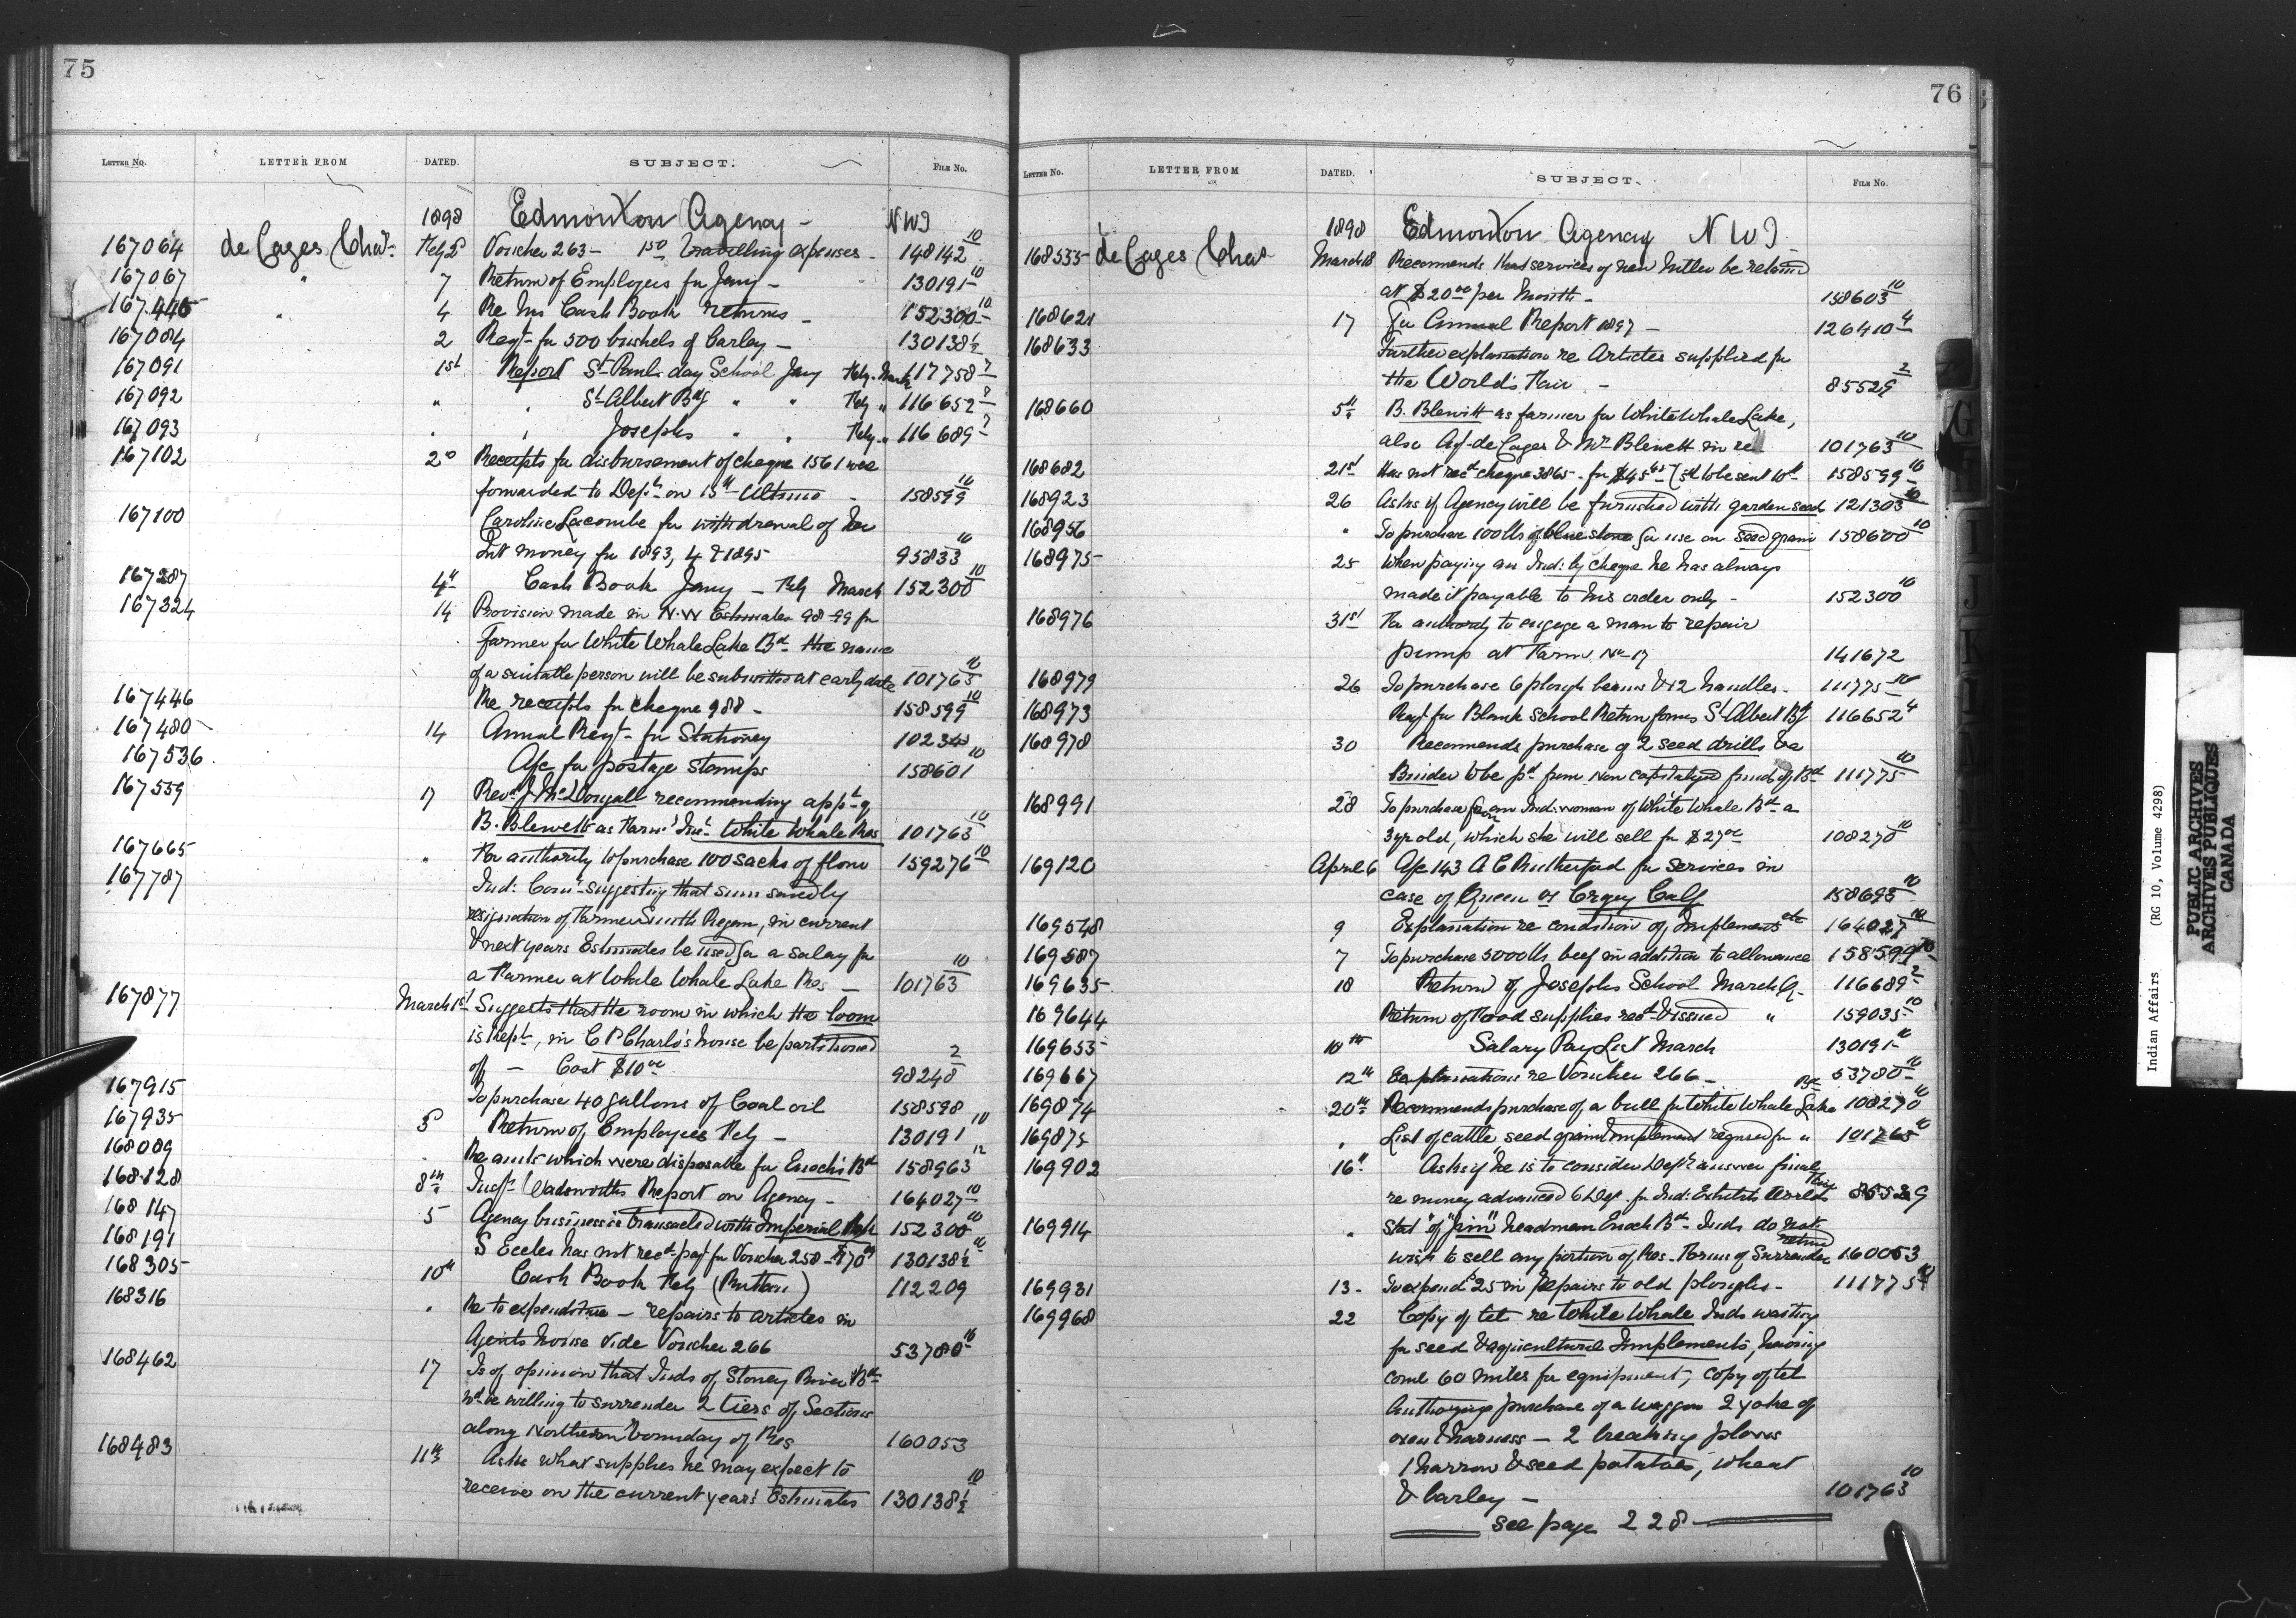 75
LETTER NO. LETTER FROM DATED. SUBJECT. FILE No.
1898 Edmonton Agency - NWT
167064 de Cazes Chas. Feby 2d Voucher 263 - 1 50 Travelling expenses - 148142 10
167067 " 7 Return of Employees for Jany - 130191 10
167445 " 4 Re his Cash Book returns - 152300 10
167084 2 Reqt for 500 bushels of barley - 130138½
167091 1st Report St Pauls day School Jany Feby March 117758
167092 " " St Albert Bdg " " Feby " 116652
167093 " " Josephs " " Feby " 116689
167102 20 Receipts for disbursement of cheque 1561 were
forwarded to Dept on 15th Ultimo - 158599 10
167100 Caroline Lacombe for withdrawal of her
Int money for 1893, 4 & 1895 95833 10
167287 4th Cash Book Jany - Feby March 152300 10
167324 14 Provision made in N.W Estimates 98-99 for
Farmer for White Whale Lake Bd the name
of a suitable person will be submitted at early date 101763 10
167446 Re receipts for cheque 988 - 158599 10
167480 14 Annual Reqt for Stationery 102343
167536 A/c for postage stamps 158601 10
167559 17 Revd J. McDougall recommending appt of
B. Blewett as Farmr Inr White Whale Res 101763 10
167665 " For authority to purchase 100 sacks of flour 159276 10
167787 Ind: Comr suggesting that sum saved by
resignation of Farmer Smith Regan, in current
& next years Estimates be used for a salary for
a Farmer at White Whale Lake Res - 101763 10
167877 March 1st Suggests that the room in which the loom
is kept, in C P Charlo's house be partitioned
off - Cost $10 00 98248 2
167915 To purchase 40 gallons of Coal oil 158598
167935 5 Return of Employees Feby - 130191 10
168089 " Re amts which were disposable for Enoch's Bd 158963 12
168128 8th Inspr Wadsworths Report on Agency - 164027 10
168147 5 Agency business is transacted with Imperial Bank 152300 10
168191 S Eccles has not recd payt for Voucher 258 - $70 130138½
168305 10th Cash Book Feby (Button) 112209
168316 " Re to expenditure - repairs to articles in
Agents house Vide Voucher 266 53780 10
168462 17 Is of opinion that Inds of Stoney River Bd
wd be willing to surrender 2 tiers of Sections
along Northern boundary of Res 160053
168483 11th Asks what supplies he may expect to
receive on the current year's Estimates 130138½ 10
76
LETTER No. LETTER FROM DATED. SUBJECT. FILE No.
1898 Edmonton Agency NWT
168535 de Cazes Chas March 18 Recommends that services of new Miller be retained
at $20 00 per Month - 158603 10
168621 17 For Annual Report 1897 - 126410 4
168633 Further explanation re Articles supplied for
the World's Fair - 85529 2
168660 5th B. Blewitt as farmer for White Whale Lake,
also Agt de Cazes & Mr Blewett in re 101763 10
168682 21st Has not recd cheque 3865 - for $45 158599 10
168923 26 Asks if Agency will be furnished with garden seed 121303 10
168956 " To purchase 100 lbs of blue stone for use on seed grain 158600 10
168975 25 When paying an Ind: by cheque he has always
made it payable to his order only - 152300 10
168976 31st For authority to engage a man to repair
pump at Farm No 17 141672
168979 26 To purchase 6 plough beams & 12 handles - 111775 10
168973 Reqt for Blank School Return forms St Albert Bdg 116652 4
168978 30 Recommends purchase of 2 seed drills & a
Binder to be pd from Non capitalized funds of Bd 111775 10
168991 28 To purchase from an Ind: woman of White Whale Bd a
3 yr old, which she will sell for $27 00 108270 10
169120 April 6 A/c 143 A C Rutherford for services in
case of Queen vs Crazy Calf 158695 10
169548 9 Explanation re condition of Implements etc 164027 10
169587 7 To purchase 5000 lbs beef in addition to allowance 158599 10
169635 18 Return of Josephs School March Qr 116689 2
169644 Return of Food supplies recd & issued " 159035 10
169655 10th Salary Pay List March 130191 10
169667 12th Explanations re Voucher 266 - 53780 10
169874 20th Recommends purchase of a bull for White Whale Lake Bd 108270 10
169875 " List of cattle, seed grain & implements required for " 101763 10
169902 16th Asks if he is to consider Dept answer final
re money advanced by Dept for Ind: Exhibit Worlds Fair 85529
169914 " Stat "of Jim" headman Enoch Bd - Inds do not
wish to sell any portion of Res - Forms of Surrender returned 160053
169931 13 - To expend $25 in repairs to old ploughs - 111775 10
169968 22 Copy of tel re White Whale Inds waiting
for seed & agricultural Implements, having
come 60 miles for equipment, copy of tel
Authorizing purchase of a waggon 2 yoke of
oxen & harness - 2 breaking plows
1 harrow & seed potatoes, wheat
& barley - 101763 10
see page 228
G
I
J
K
Indian Affairs (RG 10, Volume 4298)
PUBLIC ARCHIVES
ARCHIVES PUBLIQUES
CANADA